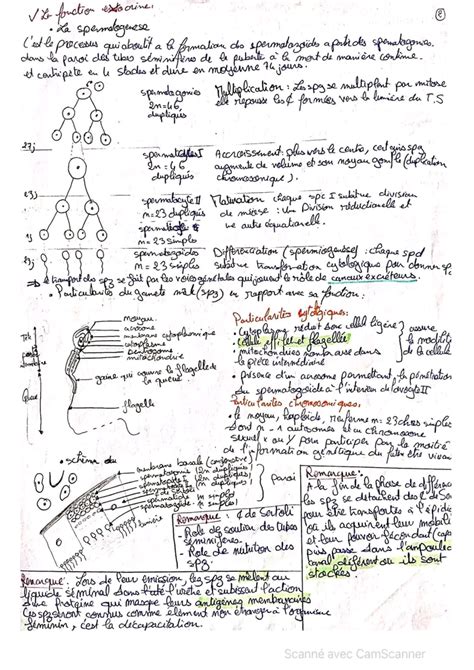 ✓ La fonction exocrine:
②
• La spermatogenèse
C'est le processus qui aboutit à la formation des spermatozoïdes à partir des spermatogonies
dans la paroi des tubes séminifères de la puberté à la mort de manière continue.
et comporte en 4 stades et dure en moyenne 74 jours.
spermatogonies
2n=46,
dupliqués
Multiplication: Les spg se multiplient par mitose
elle repousse les ¢ formées vers la lumière du T.S
27j
spermatocyte I
2n=46
dupliqués
Accroissement: plus vers le centre, cet
augmente de volume et son noyau gonfle (duplication
chromosomique).
spermatocyte II
n=23 dupliqués
n=23 simples
Maturation chaque spc I subit une division
de méiose: Une Division réductionelle et
une autre équationelle.
23j
spermatozoïdes
n=23 simples
Différenciation (spermiogenèse): chaque spd
subit une transformation cytologique pour donner spz
⇒ le transport des spz se fait par les voies génitales qui jouent le rôle de canaux excréteurs.
• Particularités du gamète mâle (spz) en rapport avec sa fonction:
noyau
acrosome
membrane cytoplasmique
cytoplasme
centrosome
mitochondrie
gaine qui couvre le flagelle de
la queue
flagelle
Tête
Queue
Particularités cytologiques:
• cytoplasme réduit
• cellule effilée et flagellée
assure
la mobilité
de la cellule
• mitochondries nombreuses dans
la pièce intermédiaire
• Présence d'un acrosome permettant la pénétration
du spermatozoïde à l'intérieur de l'ovocyte II
Particularités chromosomiques:
• le noyau, haploïde, renferme n=23 chrs simples
dont n-1 autosomes et un chromosome
sexuel X ou Y pour participer pour la moitié
de l'information génétique du futur être vivant
• schéma du
membrane basale (conjonctive)
spermatogonies (2n dupliqués)
spermatocyte I (2n dupliqués)
spermatocyte II (n dupliqués)
spermatide (n simples)
spermatozoïde (n simples)
lumière
paroi
Remarque: ¢ de Sertoli
- Rôle de soutien des tubes
séminifères.
- Rôle de nutrition des
spg.
Remarque:
à la fin de la phase de différenc
les spz se détachent des ¢ de Ser
pour être transportés à l'épidi
où ils acquièrent leur mobili
et leur pouvoir fécondant
puis passe dans l'ampoule
canal déférent où ils sont
stockées.
Remarque: Lors de leur émission, les spz se mêlent au
liquide séminal dans l'urètre et subissent l'action
d'une protéine qui masque leurs antigènes membranaires
les spz seront connus comme élément non étranger à l'organisme
féminin, c'est la décapacitation.
Scanné avec CamScanner